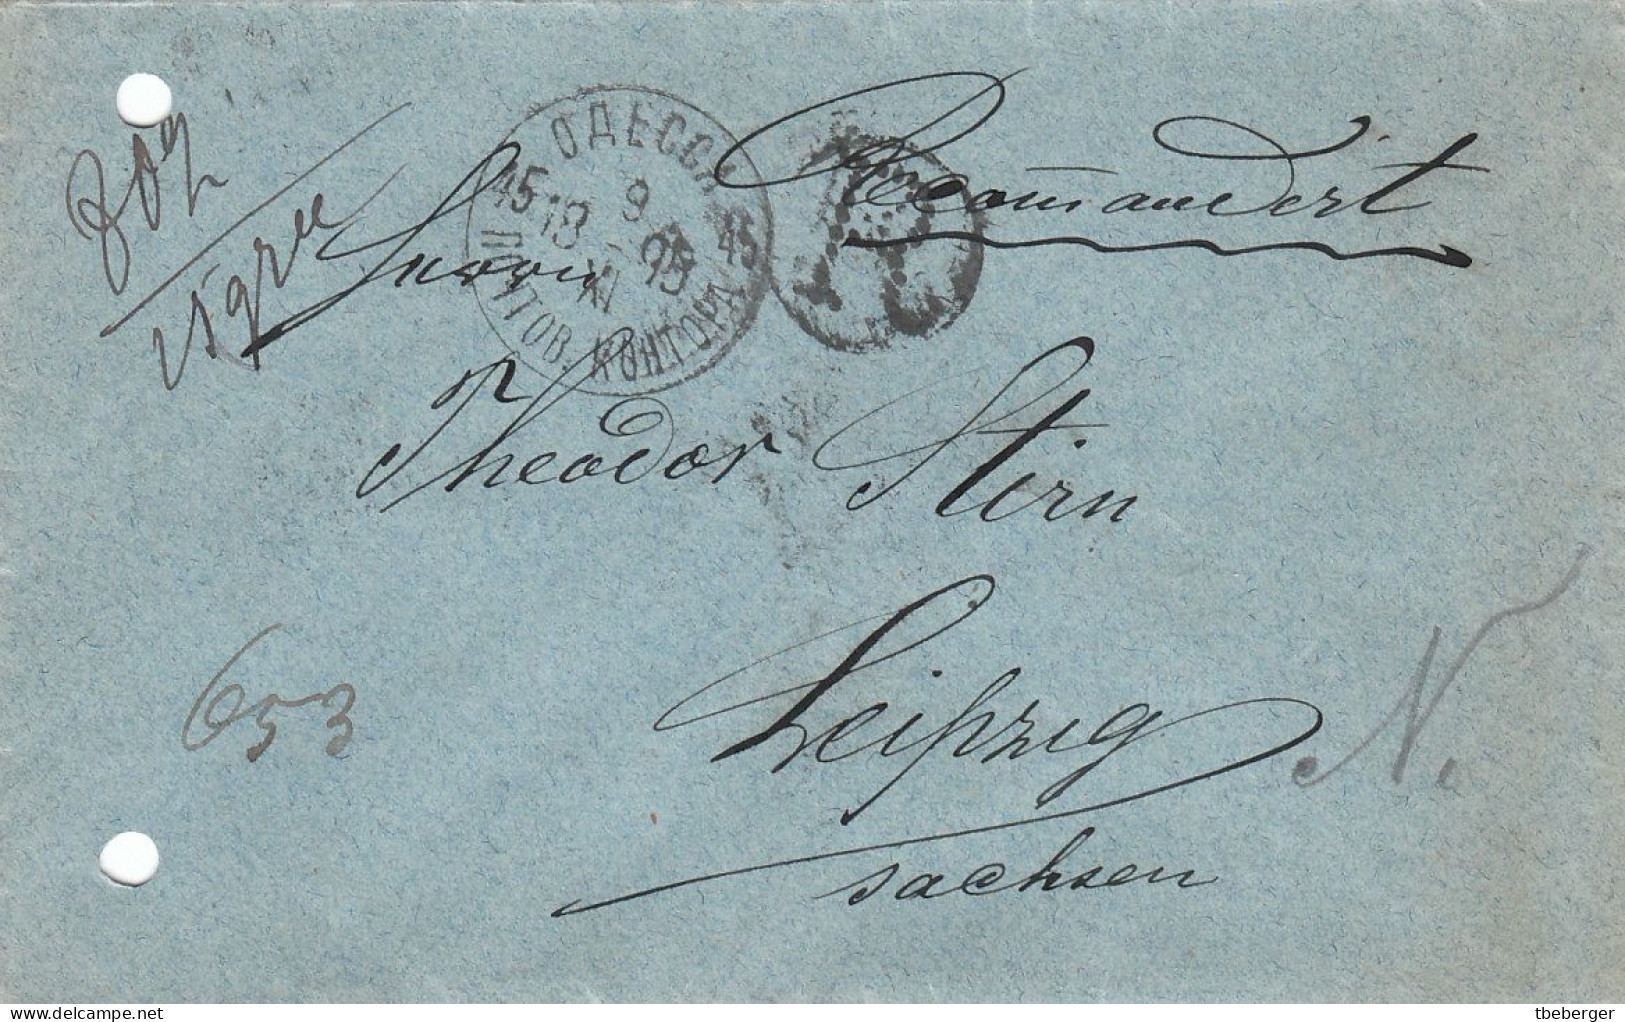 Recomandirt
ОДЕССА
45 9 45
18 95
XI
ПОЧТОВ. КОНТОРА
Herrn
Theodor Stern
653
Leipzig
N.
Sachsen
delcampe.net
tbeberger